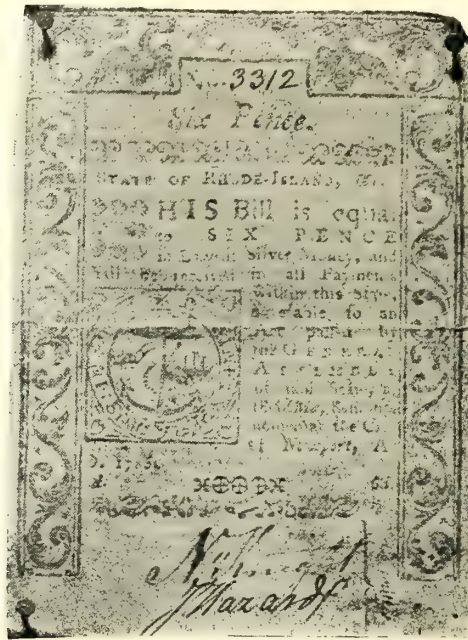 No. 3312
Six Pence.
STATE OF RHODE-ISLAND, &c.
THIS Bill is equal
to SIX PENCE
in Lawful Silver Money, and
shall be received in all Payments
within this State,
agreeable to an
Act passed by
the GENERAL
ASSEMBLY
of said State, at
the City
of Newport, A.
D. 1786.
6d.
J Hazard